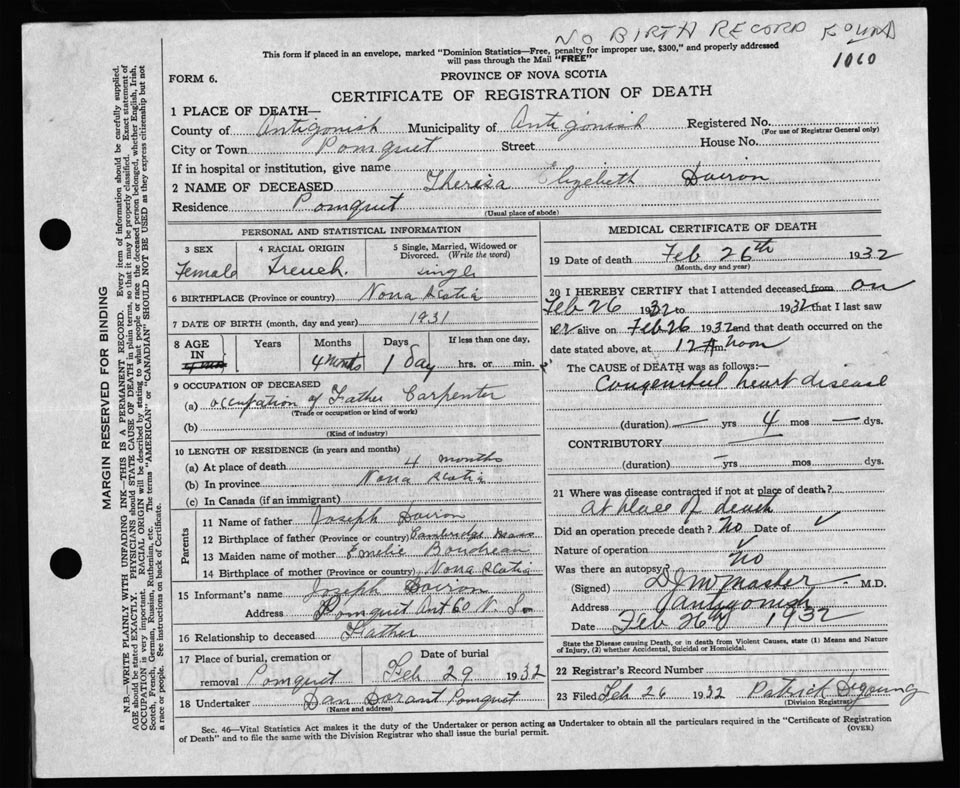 NO BIRTH RECORD FOUND
1060
This form if placed in an envelope, marked "Dominion Statistics—Free, penalty for improper use, $300," and properly addressed
will pass through the Mail "FREE"
FORM 6.
PROVINCE OF NOVA SCOTIA
CERTIFICATE OF REGISTRATION OF DEATH
1 PLACE OF DEATH—
County of Antigonish Municipality of Antigonish Registered No.
(For use of Registrar General only)
City or Town Pomquet Street House No.
If in hospital or institution, give name
2 NAME OF DECEASED Theresa Elizebeth Doiron
Residence Pomquet
(Usual place of abode)
PERSONAL AND STATISTICAL INFORMATION
3 SEX
Female
4 RACIAL ORIGIN
French.
5 Single, Married, Widowed or
Divorced. (Write the word)
single
6 BIRTHPLACE (Province or country) Nova Scotia
7 DATE OF BIRTH (month, day and year) 1931
8 AGE
IN
Years
Months
4 months
Days
1 Day
If less than one day,
hrs. or min.
9 OCCUPATION OF DECEASED
(a) occupation of Father Carpenter
(Trade or occupation or kind of work)
(b)
(Kind of industry)
10 LENGTH OF RESIDENCE (in years and months)
(a) At place of death 4 months
(b) In province Nova Scotia
(c) In Canada (if an immigrant)
Parents
11 Name of father Joseph Doiron
12 Birthplace of father (Province or country) Cambridge Mass
13 Maiden name of mother Emelie Boudreau
14 Birthplace of mother (Province or country) Nova Scotia
15 Informant's name Joseph Doiron
Address Pomquet Ant Co N.S.
16 Relationship to deceased Father
17 Place of burial, cremation or
removal Pomquet
Date of burial
Feb 29 1932
18 Undertaker Dan Dorant Pomquet
(Name and address)
MEDICAL CERTIFICATE OF DEATH
19 Date of death Feb 26th 1932
(Month, day and year)
20 I HEREBY CERTIFY that I attended deceased from on
Feb 26 1932 to 1932 that I last saw
er alive on Feb 26 1932 and that death occurred on the
date stated above, at 12 m. Noon
The CAUSE of DEATH was as follows:—
Congenital heart disease
(duration) — yrs 4 mos — dys.
CONTRIBUTORY
(duration) — yrs mos dys.
21 Where was disease contracted if not at place of death?
at place of death
Did an operation precede death? No Date of ✓
Nature of operation ✓
Was there an autopsy? No
(Signed) M.D.
Address Antigonish
Date Feb 26th 1932
State the Disease causing Death, or in death from Violent Causes, state (1) Means and Nature
of Injury, (2) whether Accidental, Suicidal or Homicidal.
22 Registrar's Record Number
23 Filed Feb 26 1932 Patrick Degoung
(Division Registrar)
Sec. 46—Vital Statistics Act makes it the duty of the Undertaker or person acting as Undertaker to obtain all the particulars required in the "Certificate of Registration
of Death" and to file the same with the Division Registrar who shall issue the burial permit.
(OVER)
MARGIN RESERVED FOR BINDING
N.B.—WRITE PLAINLY WITH UNFADING INK—THIS IS A PERMANENT RECORD. Every item of information should be carefully supplied.
AGE should be stated EXACTLY. PHYSICIANS should STATE CAUSE OF DEATH in plain terms, so that it may be properly classified. Exact statement of
OCCUPATION is very important. RACIAL ORIGIN will be described by stating to what people or race the deceased person belonged, whether English, Irish,
Scotch, French, German, Russian, Ruthenian, etc. The terms "AMERICAN" or "CANADIAN" SHOULD NOT BE USED as they express citizenship but not
a race or people. See instructions on back of Certificate.